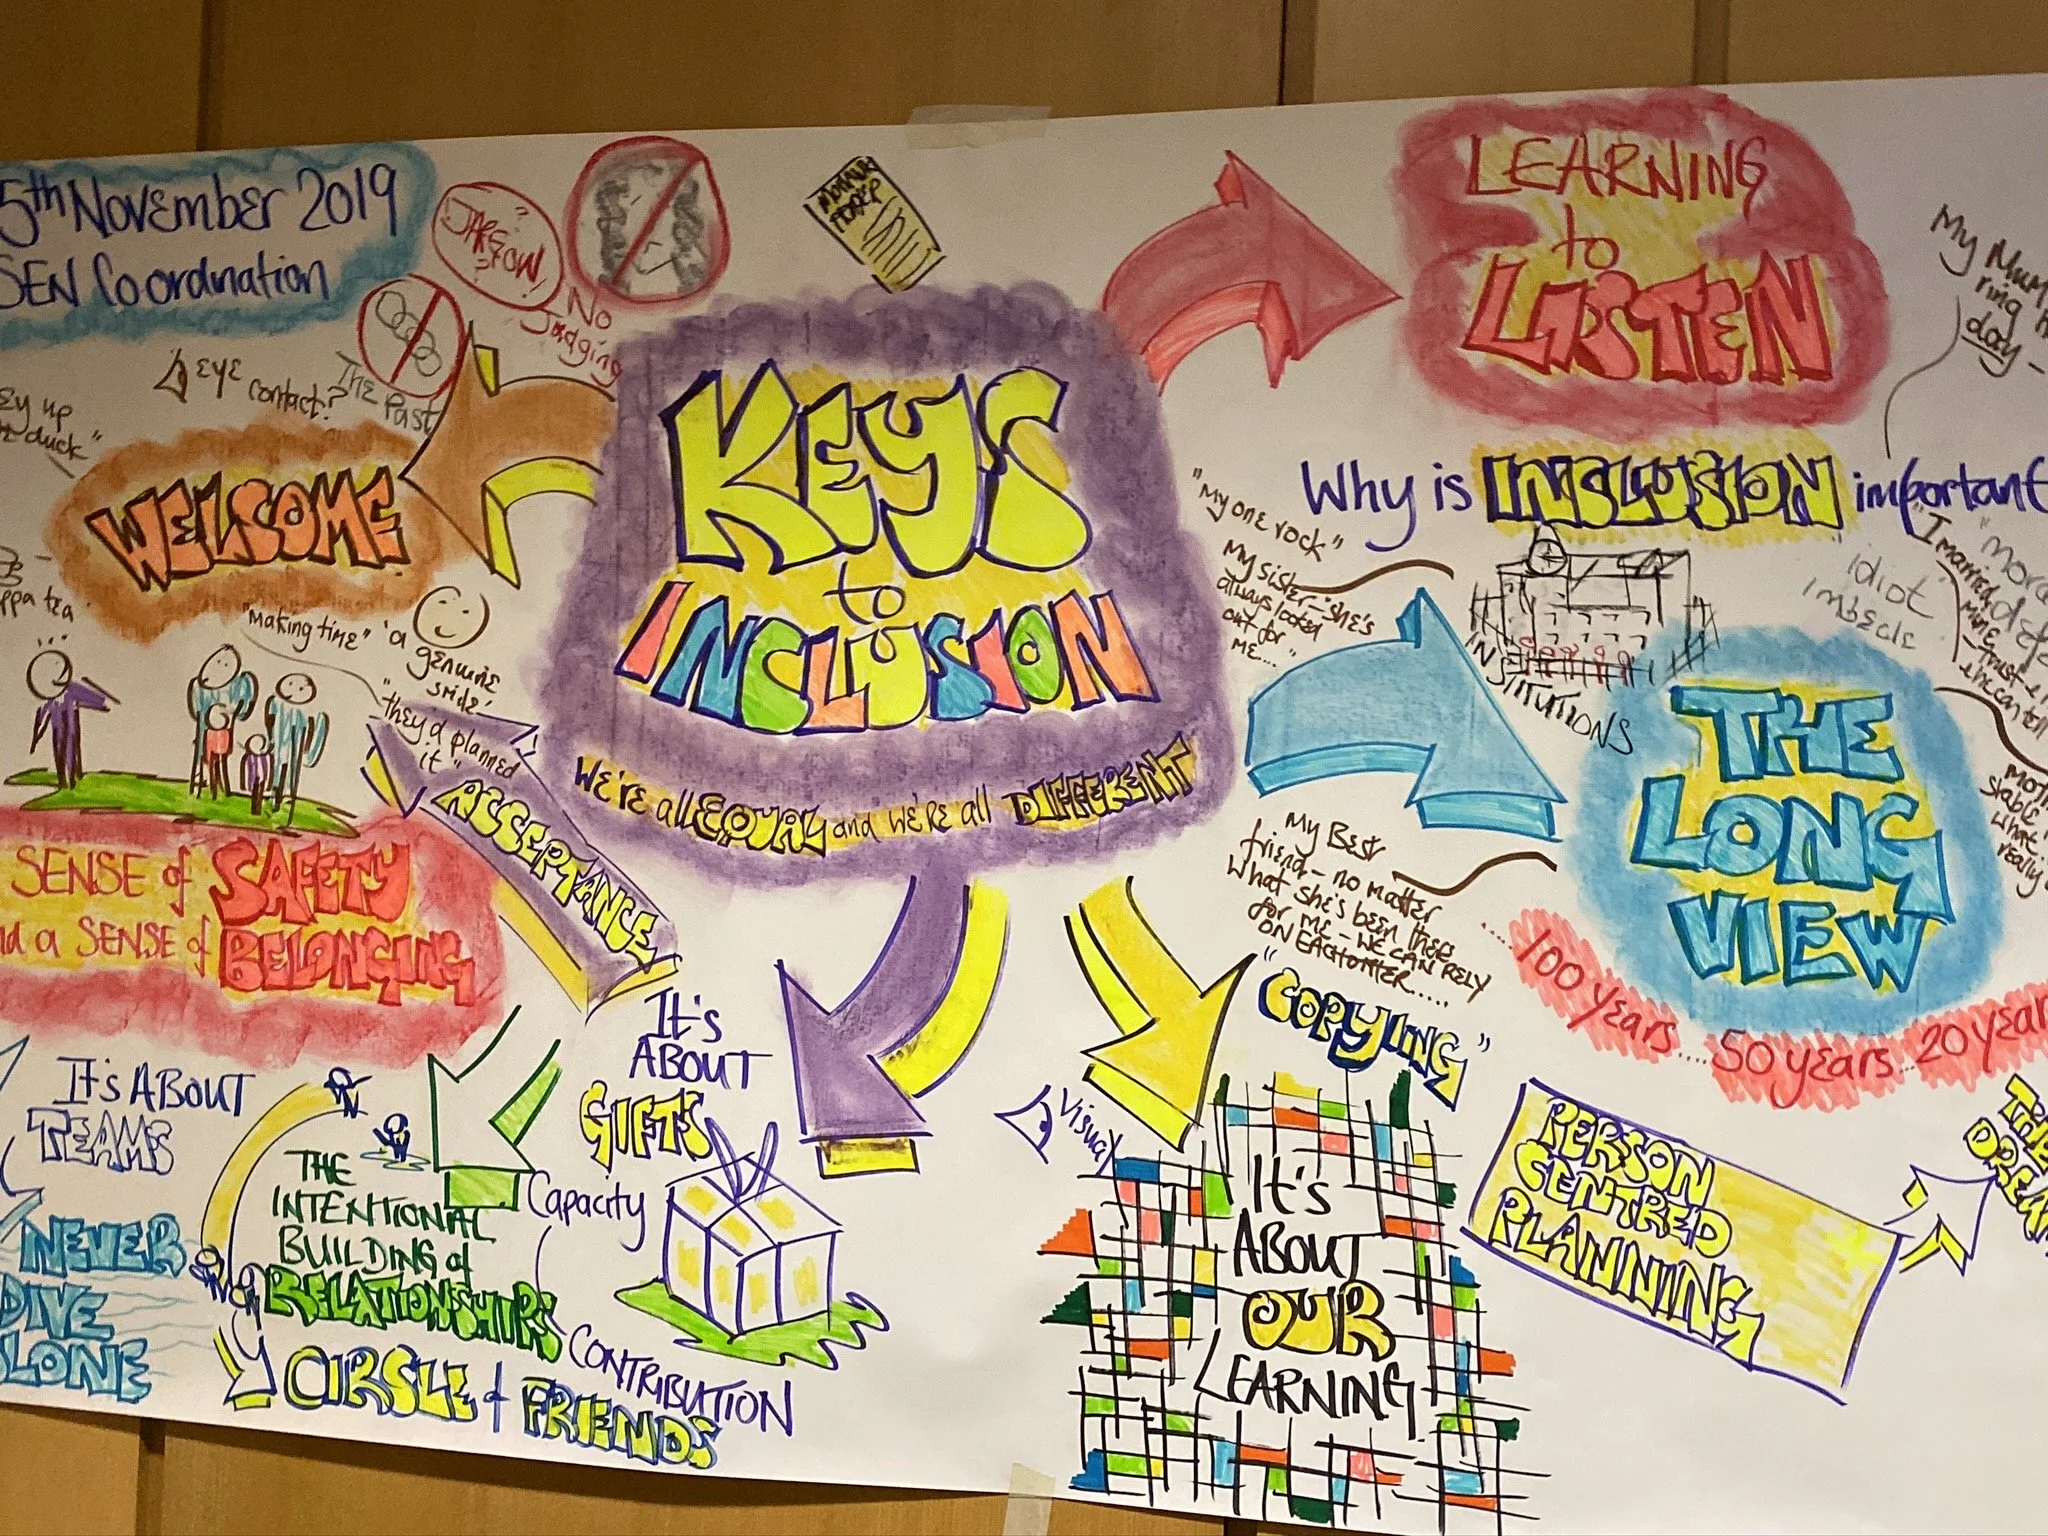 5th November 2019
SEN Coordination
JARGON
No
Judging
The Past
eye contact?
ey up
duck"
WELCOME
"making time"
'a
genuine
smile'
"they'd planned
it"
ACCEPTANCE
SENSE of SAFETY
and a SENSE of BELONGING
KEYS
to
INCLUSION
WE'RE all EQUAL and WE'RE all DIFFERENT
LEARNING
to
LISTEN
My Mum
ring
day -
Why is INCLUSION important
"My one rock"
My sister - "she's
always looked
out for
me..."
INSTITUTIONS
idiot
imbecile
"I married
mine - trust
THE
LONG
VIEW
100 years.... 50 years... 20 years
My Best
friend - no matter
what she's been there
for me - WE CAN RELY
ON EACH OTHER.....
"COPYING"
Visual
IT'S
ABOUT
OUR
LEARNING
PERSON
CENTRED
PLANNING
THE
DREAM
IT'S ABOUT
TEAMS
NEVER
DIVE
ALONE
THE
INTENTIONAL
BUILDING of
RELATIONSHIPS
CIRCLE of FRIENDS
IT'S
ABOUT
GIFTS
Capacity
CONTRIBUTION